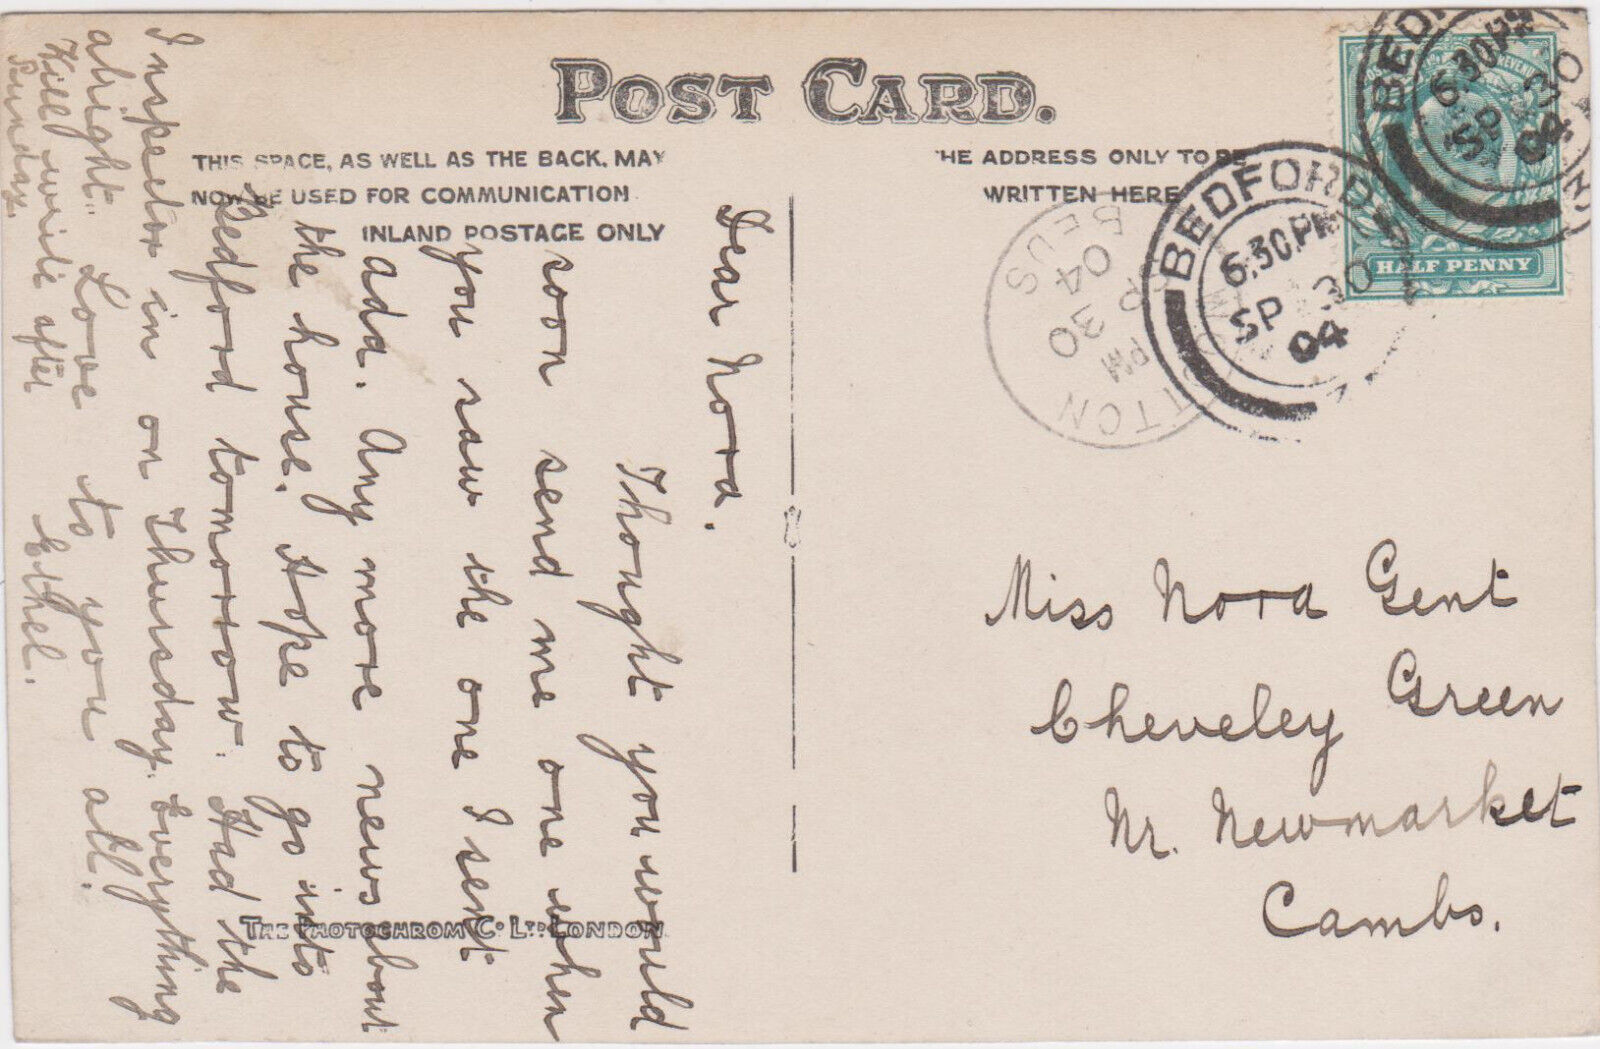 POST CARD.
THIS SPACE, AS WELL AS THE BACK, MAY
NOW BE USED FOR COMMUNICATION
INLAND POSTAGE ONLY
HE ADDRESS ONLY TO BE
WRITTEN HERE
Dear Nora.
Thought you would
soon send me one when
you saw the one I sent
ada. Any more news about
the house. Hope to go into
Bedford tomorrow. Had the
Inspector in on Thursday. Everything
alright. Love to you all.
Ethel.
Will write after
Sunday.
THE PHOTOCHROM CO LTD LONDON
Miss Nora Gent
Cheveley Green
Nr. Newmarket
Cambs.
HALF PENNY
BEDFORD
6.30PM
SP 30
04
BEDF
6.30PM
SP 30
04
PM
30
SP
04
BEDS